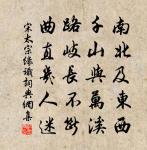 南北及東西
千山與萬溪
路岐長不斷
曲直幾人迷
宋太宗緣識詞典網集